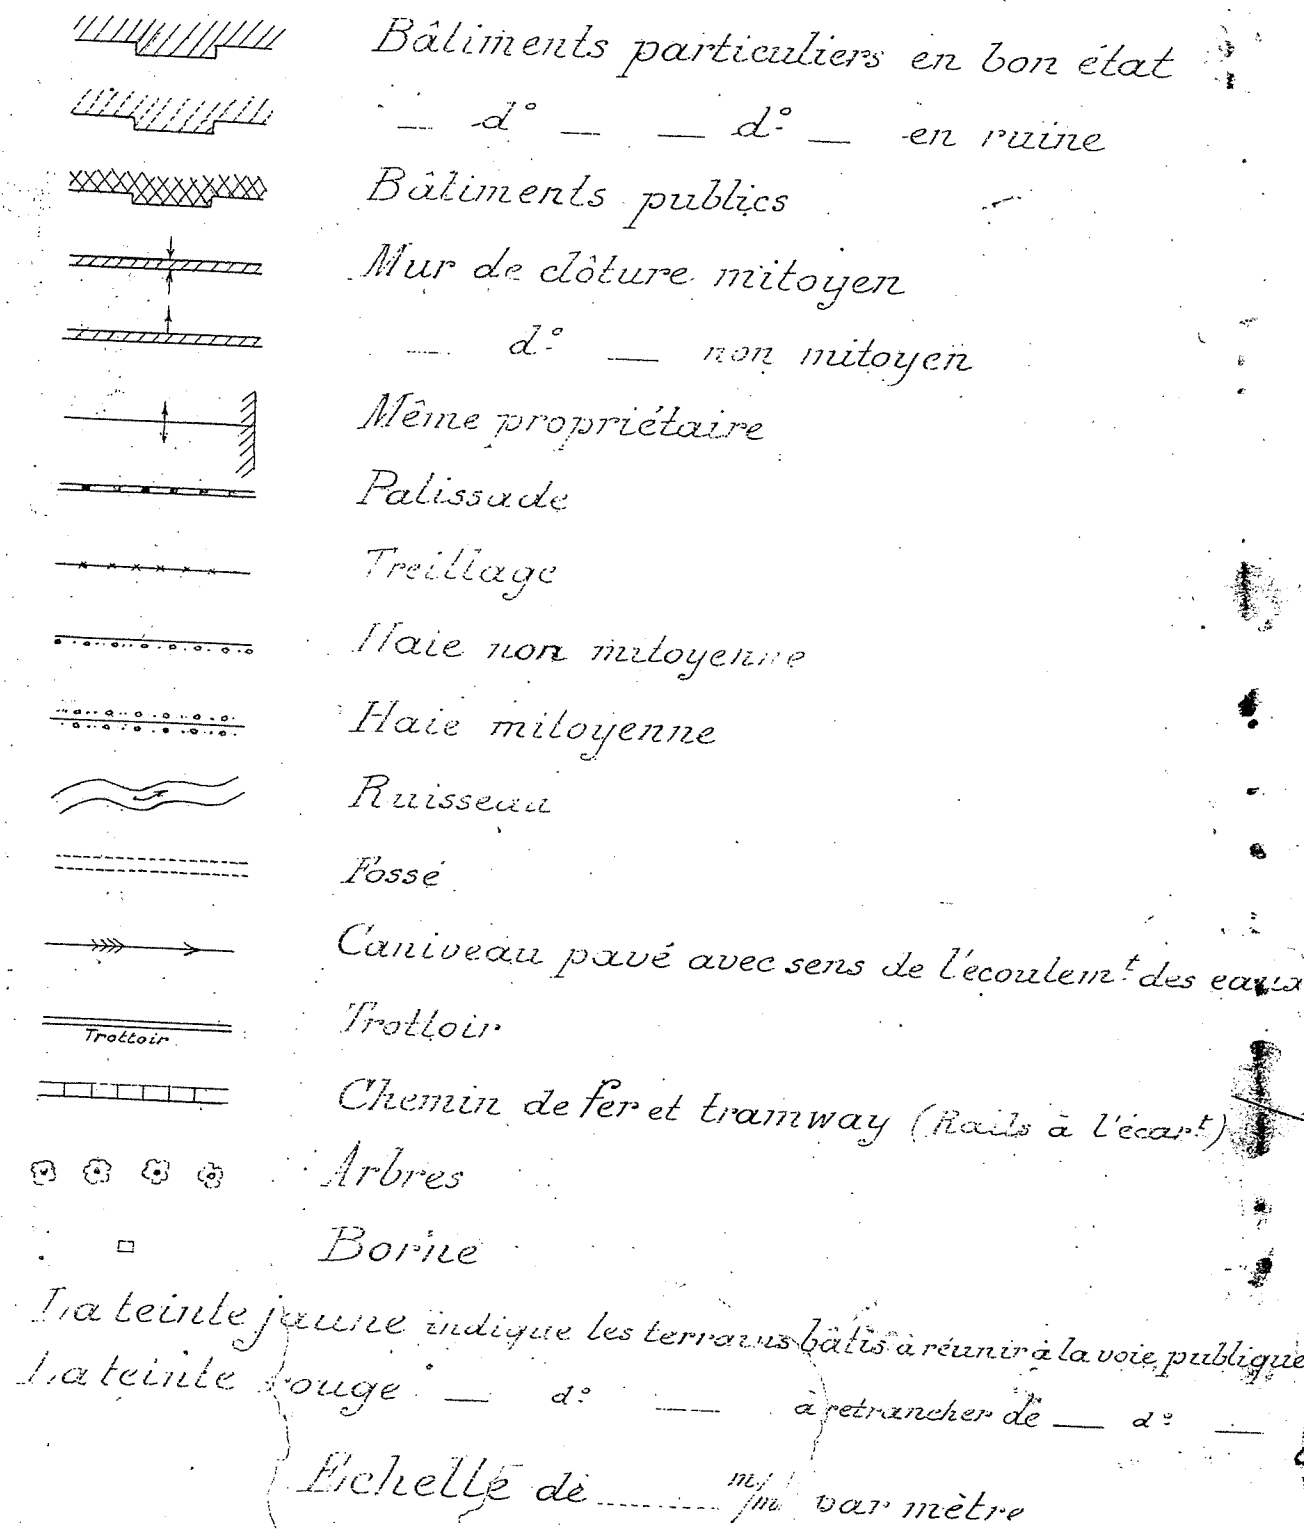 Bâtiments particuliers en bon état
— d° — — d° — en ruine
Bâtiments publics
Mur de clôture mitoyen
— d° — non mitoyen
Même propriétaire
Palissade
Treillage
Haie non mitoyenne
Haie mitoyenne
Ruisseau
Fossé
Caniveau pavé avec sens de l'écoulemt des eaux
Trottoir
Trottoir
Chemin de fer et tramway (Rails à l'écart)
Arbres
Borne
La teinte jaune indique les terrains bâtis à réunir à la voie publique
La teinte rouge — d° — à retrancher de — d° —
Echelle de ........ m/m par mètre